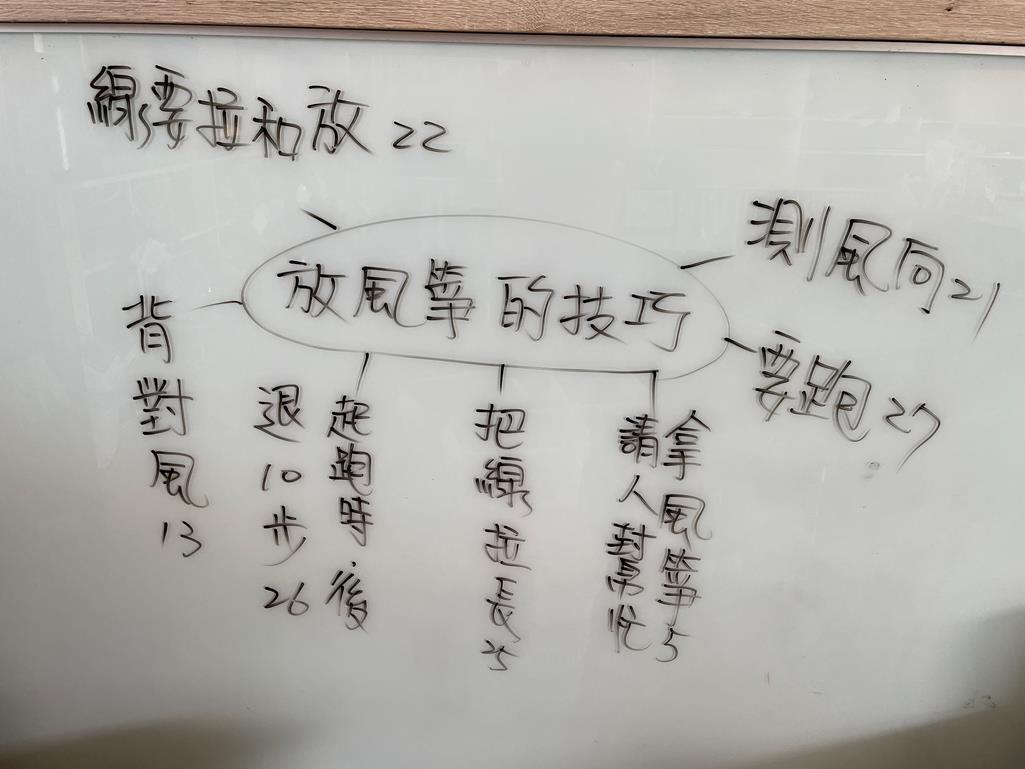 線要拉和放22
放風箏的技巧
測風向21
要跑27
背對風13
起跑時後
退10步26
把線拉長25
拿風箏5
請人幫忙